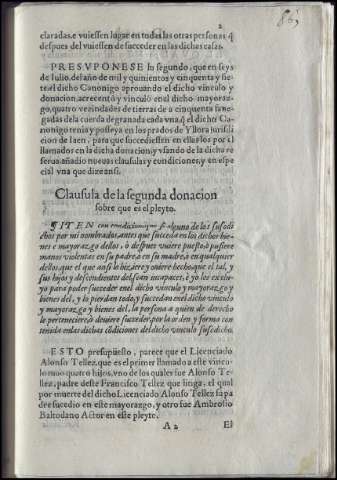 2
863
claradas, e vuiessen lugar en todas las otras personas q̃
despues del vuiessen de succeder en las dichas casas.
PRESVPONESE lo segundo, que en seys
de Iulio, del año de mil y quinientos y cinquenta y sie-
te, el dicho Canonigo aprouando el dicho vinculo y
donacion, acrecentò y vinculo en el dicho mayoraz-
go, quatro vezindades de tierras de a cinquenta fane-
gadas de la cuerda de granada cada vna, q̃ el dicho Ca-
nonigo tenia y posseya en los prados de Yllora jurisdi
cion de Iaen, para que succediessen en ellas los por el
llamados en la dicha donacion, y vsando de la dicha re
serua añadio nueuas clausulas y condiciones, y en espe
cial vna que dize ansi.
Clausula de la segunda donacion
sobre que es el pleyto.
¶ ITEN con condicion, que si alguno de los susodi
chos por mi nombrados, antes que succeda en los dichos bie-
nes e mayorazgo dellos, ò despues vuiere puesto, ò pusiere
manos violentas en su padre, o en su madre, o en qualquier
dellos, que el que ansi lo hiziere y ouiere hecho, que el tal, y
sus hijos y descendientes del sean incapaces, è yo los exclu-
yo para poder succeder en el dicho vinculo y mayorazgo y
bienes del, y lo pierdan todo, y succedan en el dicho vinculo
y mayorazgo y bienes del, la persona a quien de derecho
le perteneciere, ò deuiere succeder, por la orden y forma con
tenida en las dichas cõdiciones del dicho vinculo susodicho.
ESTO presupuesto, parece que el Licenciado
Alonso Tellez, que es el primer llamado a este vincu
lo tuuo quatro hijos, vno de los quales fue Alonso Te
llez, padre deste Francisco Tellez que litiga, el qual
por muerte del dicho Licenciado Alonso Tellez su pa
dre sucedio en este mayorazgo, y otro fue Ambrosio
Baltodano Actor en este pleyto.
A 2
El